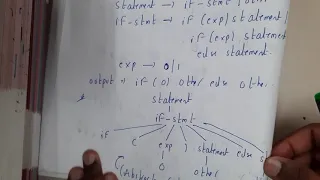 statement → if-stmt | other
if-stmt → if (exp) statement |
if (exp) statement
else statement
exp → 0/1
output → if (0) other else other
statement
if-stmt
if ( exp ) statement else
0 other